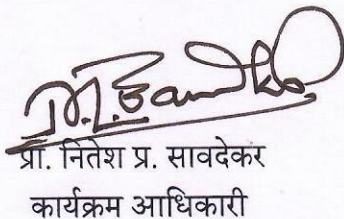 प्रा. नितेश प्र. सावदेकर
कार्यक्रम आधिकारी